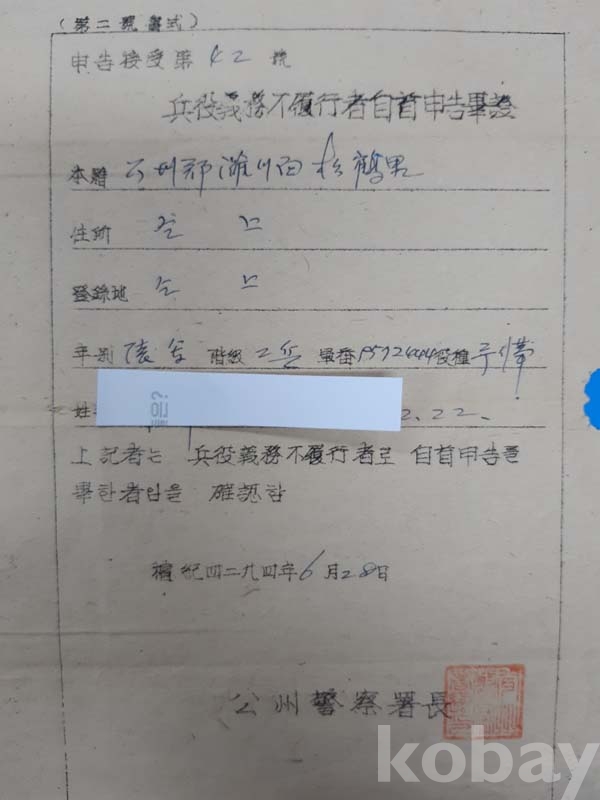 (第二號書式)
申告接受第 42 號
兵役義務不履行者自首申告畢證
本籍 公州郡 灘川面 松鶴里
住所
登錄地
年別 階級 軍番 役種
姓
2.22.
上記者는 兵役義務不履行者로 自首申告를
畢한者임을 確認함
檀紀四二九四年 6月 28日
公州警察署長
kobay